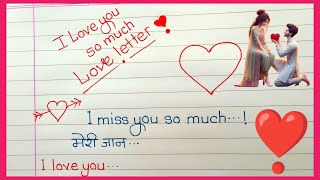 I Love you
so much
Love letter
I miss you so much...!
मेरी जान...
I love you...